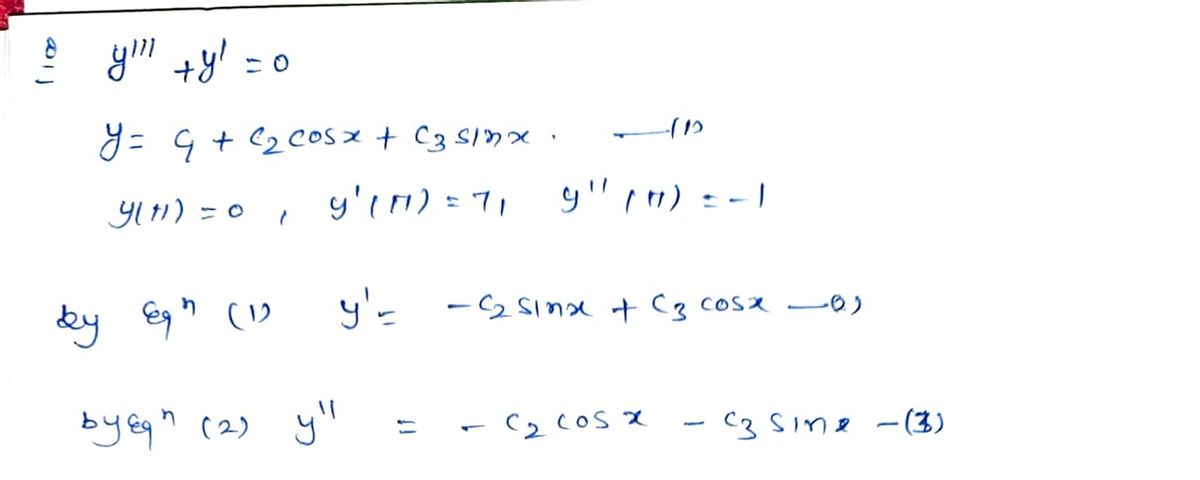 y''' + y' = 0
y = c₁ + c₂ cos x + c₃ sin x . —(1)
y(π) = 0 , y'(π) = 7, y''(π) = -1
by Eqⁿ (1) y' = - c₂ sin x + c₃ cos x —(2)
by Eqⁿ (2) y'' = - c₂ cos x - c₃ sin x -(3)